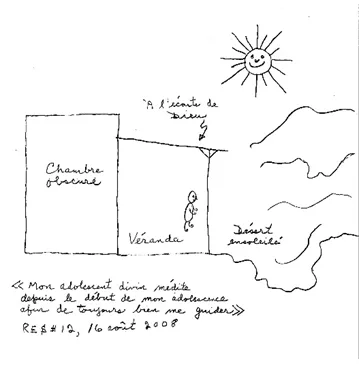 "À l'écoute de
Dieu"
Chambre
obscure
Véranda
Désert
ensoleillé
« Mon adolescent divin médite
depuis le début de mon adolescence
afin de toujours bien me guider »
RES#12, 16 août 2008